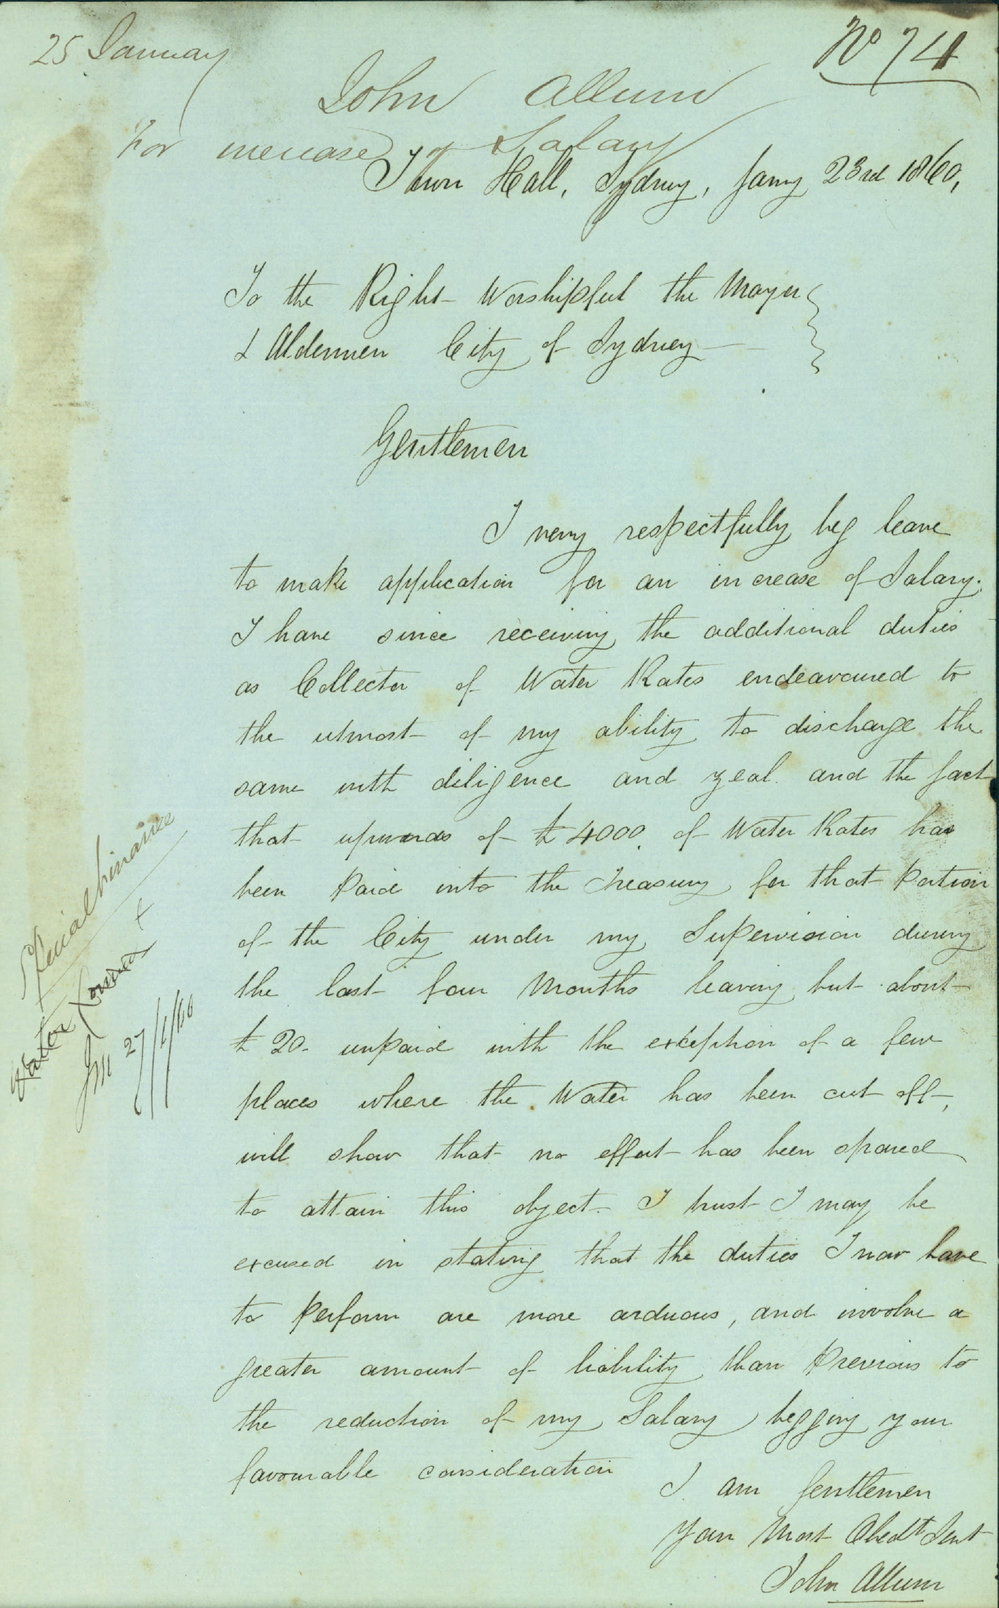 25 January
No 74
John Allum
For increase of Salary
Town Hall, Sydney, Jany 23rd 1860,
To the Right Worshipful the Mayor
& Aldermen City of Sydney
Gentlemen
I very respectfully beg leave
to make application for an increase of Salary.
I have since receiving the additional duties
as Collector of Water Rates endeavoured to
the utmost of my ability to discharge the
same with diligence and zeal and the fact
that upwards of £4000 of Water Rates has
been Paid into the Treasury for that Portion
of the City under my Supervision during
the last four Months leaving but about
£20 unpaid with the exception of a few
places where the Water has been cut off,
will show that no effort has been spared
to attain this object. I trust I may be
excused in stating that the duties I now have
to Perform are more arduous, and involve a
greater amount of liability than Previous to
the reduction of my Salary begging your
favourable consideration
I am Gentlemen
Your Most Obedt Servt
John Allum
Water
27/1/60